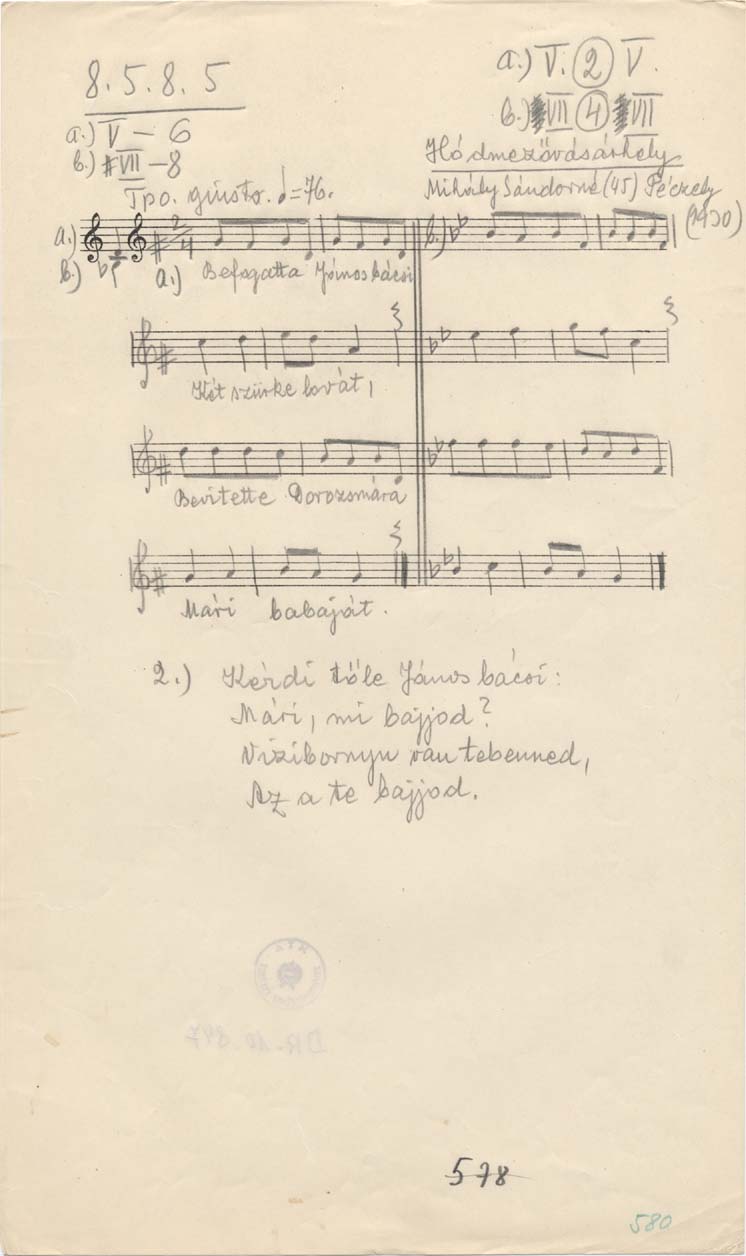 8.5.8.5
a.) V. 2 V.
b.) VII 4 VII
a.) V – 6
b.) #VII – 8
Hódmezővásárhely
Tpo. giusto. ♩=76.
Mihály Sándorné (45) Péczely
(1930)
a.)
b.)
2/4
a.) Befogatta János bácsi
b.)
Két szürke lovát,
Bevitette Dorozsmára
Mári babaját.
2.) Kérdi tőle János bácsi:
Mári, mi bajjod?
Vizibornyu van tebenned,
Az a te bajjod.
DR. 10.847
578
580